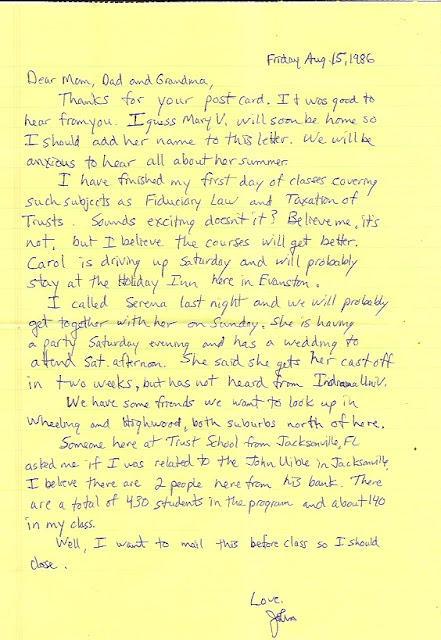 Friday Aug. 15, 1986
Dear Mom, Dad and Grandma,
Thanks for your post card. It was good to
hear from you. I guess Mary V. will soon be home so
I should add her name to this letter. We will be
anxious to hear all about her summer.
I have finished my first day of classes covering
such subjects as Fiduciary Law and Taxation of
Trusts. Sounds exciting doesn't it? Believe me, it's
not, but I believe the courses will get better.
Carol is driving up Saturday and will probably
stay at the Holiday Inn here in Evanston.
I called Serena last night and we will probably
get together with her on Sunday. She is having
a party Saturday evening and has a wedding to
attend Sat. afternoon. She said she gets her cast off
in two weeks, but has not heard from Indiana Univ.
We have some friends we want to look up in
Wheeling and Highwood, both suburbs north of here.
Someone here at Trust School from Jacksonville, FL
asked me if I was related to the John Uible in Jacksonville.
I believe there are 2 people here from his bank. There
are a total of 430 students in the program and about 140
in my class.
Well, I want to mail this before class so I should
close.
Love,
John